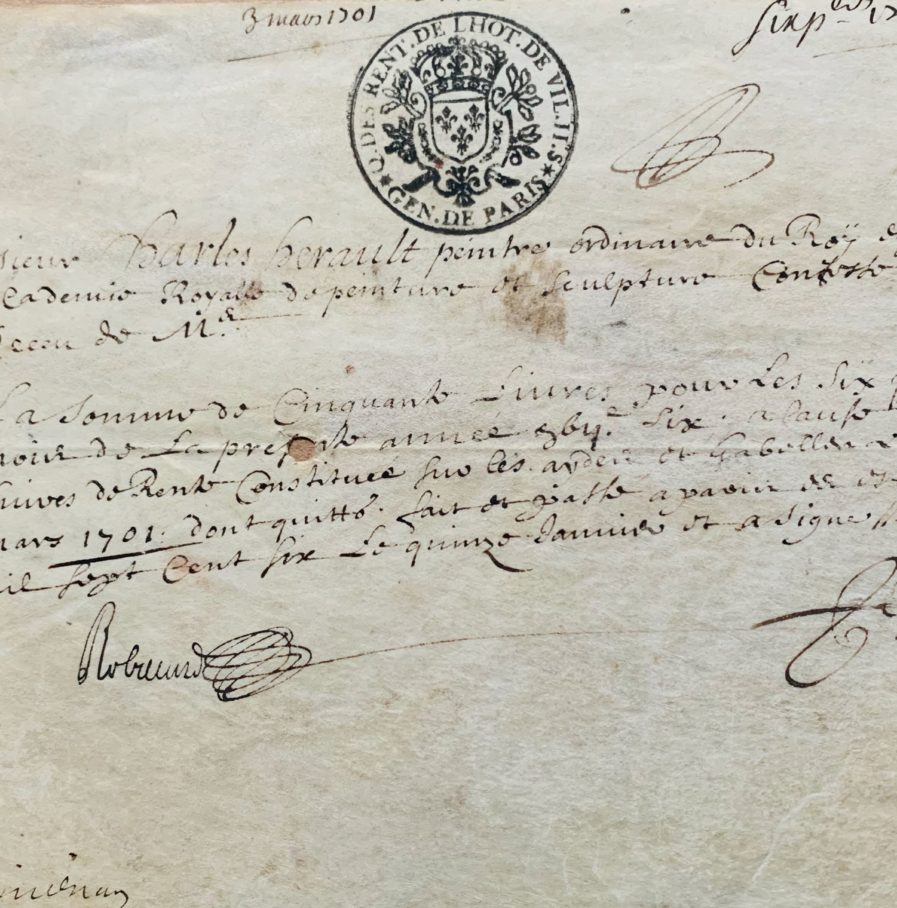 3 mars 1701
Q. DES RENT. DE LHOT. DE VIL.
GEN. DE PARIS
sieur Charles herault peintre ordinaire du Roÿ
Cademie Royalle de peinture et sculpture Confesse
Receu de Mr.
La somme de Cinquante Livres pour Les Six
mois de La presente année six a cause
Livres de Rente Constituée sur les aydes et Gabelles
mars 1701. dont quitte. fait et passé a paris
mil sept Cent six Le quinze Janvier et a signé